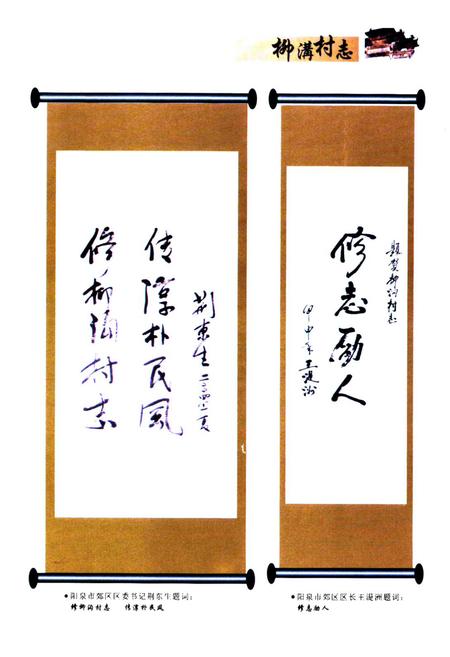 柳溝村志
修柳沟村志
传淳朴民风
荆东生二〇〇四年夏
题贺柳沟村志
修志励人
甲申年王湜洲
•阳泉市郊区区委书记荆东生题词：
修柳沟村志 传淳朴民风
•阳泉市郊区区长王湜洲题词：
修志励人